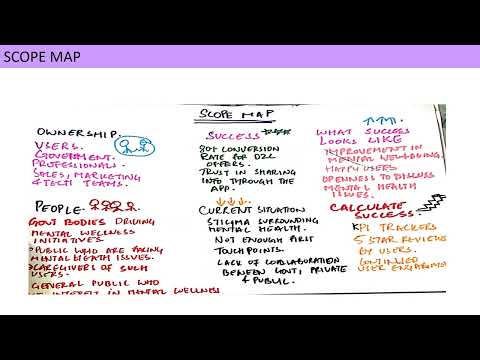 SCOPE MAP
SCOPE MAP
OWNERSHIP.
USERS.
GOVERNMENT.
PROFESSIONALS.
SALES, MARKETING
& TECH TEAMS.
PEOPLE
GOVT BODIES DRIVING
MENTAL WELLNESS
INITIATIVES
PUBLIC WHO ARE FACING
MENTAL HEALTH ISSUES.
CAREGIVERS OF SUCH
USERS.
GENERAL PUBLIC WHO
INTEREST IN MENTAL WELLNESS
SUCCESS
80% CONVERSION
RATE FOR D2C
OFFERS.
TRUST IN SHARING
INFO THROUGH THE
APP.
CURRENT SITUATION
STIGMA SURROUNDING
MENTAL HEALTH.
NOT ENOUGH FIRST
TOUCH POINTS
LACK OF COLLABORATION
BETWEEN GOVT, PRIVATE
& PUBLIC.
WHAT SUCCESS
LOOKS LIKE
IMPROVEMENT IN
MENTAL WELLBEING.
HAPPY USERS
OPENNESS TO DISCUSS
MENTAL HEALTH
ISSUES.
CALCULATE
SUCCESS
KPI TRACKERS
5 STAR REVIEWS
BY USERS.
CONTINUED
USER ENGAGEMENT